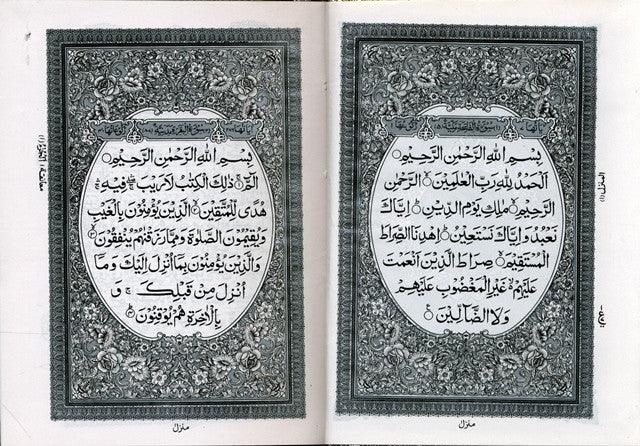 سُوْرَةُ الْفَاتِحَةِ مَكِّيَّةٌ
بِسْمِ اللّٰهِ الرَّحْمٰنِ الرَّحِيْمِ
اَلْحَمْدُ لِلّٰهِ رَبِّ الْعٰلَمِيْنَ الرَّحْمٰنِ
الرَّحِيْمِ مٰلِكِ يَوْمِ الدِّيْنِ اِيَّاكَ
نَعْبُدُ وَاِيَّاكَ نَسْتَعِيْنُ اِهْدِنَا الصِّرَاطَ
الْمُسْتَقِيْمَ صِرَاطَ الَّذِيْنَ اَنْعَمْتَ
عَلَيْهِمْ غَيْرِ الْمَغْضُوْبِ عَلَيْهِمْ
وَلَا الضَّآلِّيْنَ
منزل
سُوْرَةُ الْبَقَرَةِ مَدَنِيَّةٌ
بِسْمِ اللّٰهِ الرَّحْمٰنِ الرَّحِيْمِ
الٓمّٓ ذٰلِكَ الْكِتٰبُ لَا رَيْبَ فِيْهِ
هُدًى لِّلْمُتَّقِيْنَ الَّذِيْنَ يُؤْمِنُوْنَ بِالْغَيْبِ
وَيُقِيْمُوْنَ الصَّلٰوةَ وَمِمَّا رَزَقْنٰهُمْ يُنْفِقُوْنَ
وَالَّذِيْنَ يُؤْمِنُوْنَ بِمَآ اُنْزِلَ اِلَيْكَ وَمَآ
اُنْزِلَ مِنْ قَبْلِكَ ۚ وَ
بِالْاٰخِرَةِ هُمْ يُوْقِنُوْنَ
منزل